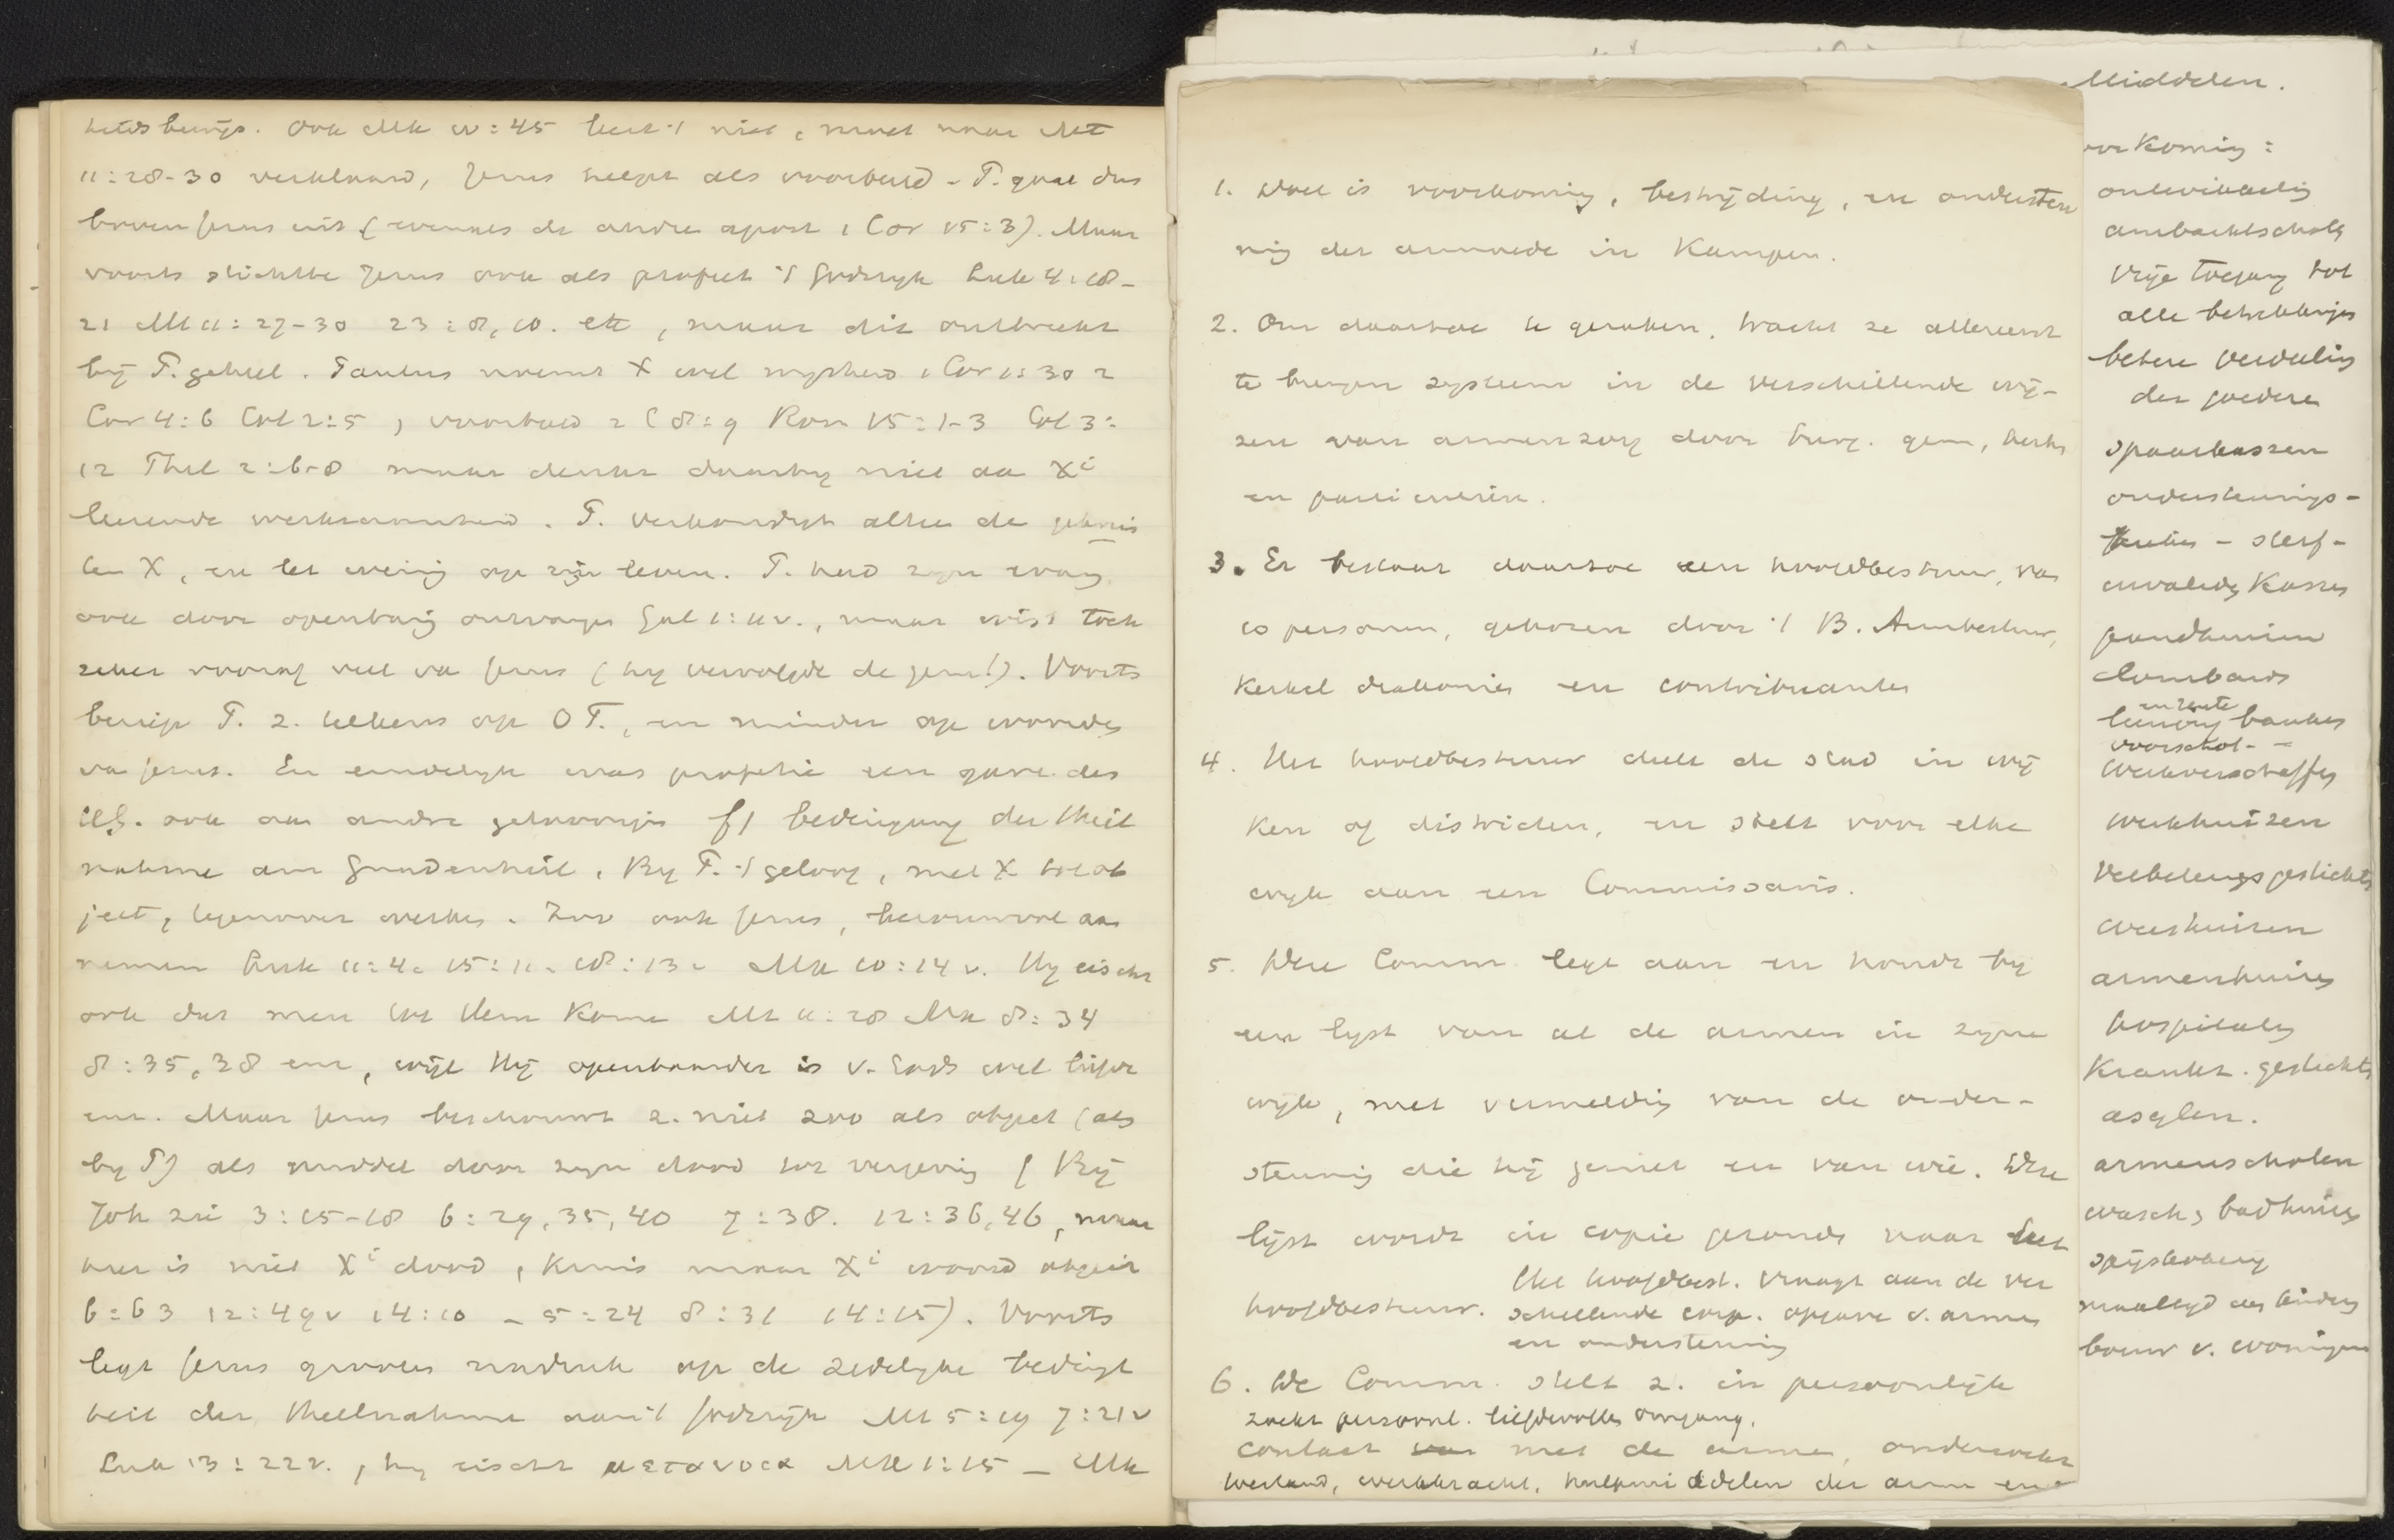 Ook Mk IV:45 leert 't niet, moet naar Mt
11:28-30 verklaard, Jezus helpt als voorbeeld - P. gaat dus
boven Jezus uit (evenals de andre apost 1 Cor 15:3). Maar
voorts stichtte Jezus ook als profeet 't Godsryk Luk 4:18-
21 Mt 11:27-30 23:8,10. etc, maar dit ontbreekt
bij P. geheel. Paulus noemt X wel wysheid 1 Cor 1:30 2
Cor 4:6 Col 2:5, voorbeeld 2 C 8:9 Rom 15:1-3 Col 3:
12 Phil 2:6-8 maar denkt daarby niet aa Xi
leerende werkzaamheid. P. verkondigt alleen de
X, en let weinig op zijn leven. P. had zyn evang.
ook door openbarig ontvangen Gal 1:11v., maar wist toch
zeker vooraf veel va Jezus (hy vervolgde de gem!). Voorts
beriep P. z. telkens op O T., en minder op woorden
va Jezus. En eindelyk was profetie een gave des
HG. ook aan andre geloovigen f) Bedingung der Theil
nahme am Gnadenheil. By P. 't geloof, met X tot ob
ject, tegenover werken. Zoo ook Jezus, berouwvol aan
nemen Luk 11:4. 15:11. 18:13. Mk 10:14v. Hy eischt
ook dat men tot Hem kome Mt 11:28 Mk 8:34
8:35,38 enz, wijl Hij openbaarder is v. Gods wet liefde
enz. Maar Jezus beschouwt z. niet zoo als object (als
by P) als middel door zyn dood tot vergeving (Bij
Joh zie 3:15-18 6:29,35,40 7:38. 12:36,46, maar
hier is niet Xi dood, kruis maar Xi woord object
6:63 12:49v 14:10 - 5:24 8:31 14:15). Voorts
legt Jezus grooten nadruk op de zedelyke bedingt
heit der Theilnahme aan 't Godsrijk Mt 5:19 7:21v
Luk 13:22v., hy eischt μετανοια Mk 1:15 - Mk
1. Doel is voorkoming, bestrijding, en ondersteu
nig der armoede in Kampen.
2. Om daartoe te geraken, tracht ze allereerst
te brengen systeem in de verschillende wij-
zen van armenzorg door burg. gem, kerken
en particulieren.
3. Er bestaat daartoe een hoofdbestuur, van
10 personen, gekozen door 't B. Armbestuur,
Kerkel diakonies en contribuanten
4. Het hoofdbestuur deelt de stad in wij
ken of districten, en stelt voor elke
wyk aan een Commissaris.
5. Deze Comm. legt aan en houdt by
een lyst van al de armen in zyne
wyk, met vermeldig van de onder-
steunig die hij geniet en van wie. Deze
lijst wordt in copie gezonden naar het
hoofdbestuur. Het hoofdbest. vraagt aan de ver
schillende corp. opgave v. armen
en ondersteunig
6. De Comm. stelt z. in persoonlijk
zoekt persoonl. liefdevollen omgang,
contact van met de armen, onderzoekt
toestand, werkkracht, hulpmiddelen der armen en
Middelen.
voorkoming:
ontwikkelig
ambachtschool
vrije toegang tot
alle betrekkingen
betere verdeelig
der goederen
spaarkassen
ondersteunings-
- sterf-
invaliden kassen
pandhuizen
lombards
en rente
leening banken
voorschot- -
werkverschaffig
werkhuizen
verbeteringsgestichten
weeshuizen
armenhuizen
hospitalen
Krankz. gestichten
asylen.
armenscholen
wasch, badhuizen
spijskokery
maaltyd der kinders
bouw v. woningen